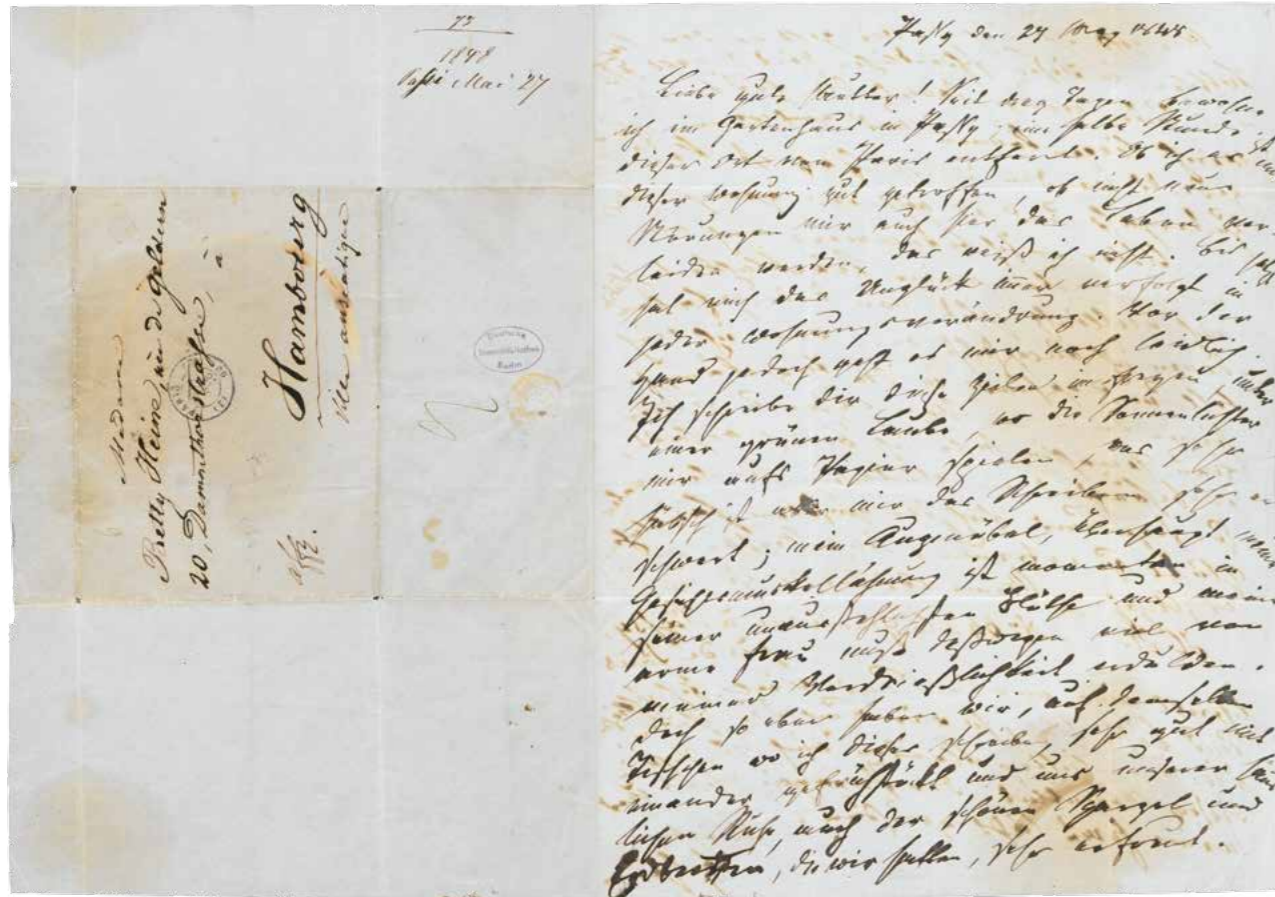 73
1848
Passi Mai 27
Madame
Betty Heine, née de Geldern
20, Dammthorstraße, à
Hambourg
ville anséatique
Passy den 27 May 1848
Liebe gute Mutter! Seit drey Tagen bewohne
ich ein Gartenhaus in Passy; eine halbe Stunde
dieser Ort von Paris entfernt. Ob ich es
dieser Wohnung gut getroffen, ob nicht neue
Störungen mir auch hier das Leben ver-
leiden werden, das weiß ich nicht. Bis jetzt
hat mich das Unglück immer verfolgt in
jeder Wohnungsverändrung. Vor der
Hand jedoch geht es mir noch leidlich.
Ich schreibe dir diese Zeilen im Freyen, unter
einer grünen Laube, wo die Sonnenlichter
mir aufs Papier spielen, was sehr
hübsch ist aber mir das Schreiben sehr er
schwert; mein Augenübel, überhaupt meine
Gesichtsmuskellähmung ist momentan in
seiner unausstehlichsten Blüthe und meine
arme Frau muß deßwegen viel von
meiner Verdrießlichkeit erdulden.
Doch so eben haben wir, auf demselben
Tischchen wo ich dieses schreibe, sehr gut mit
einander gefrühstückt und uns unserer länd
lichen Ruhe, auch der schönen Spargel und
Erdbeeren, die wir hatten, sehr erfreut.